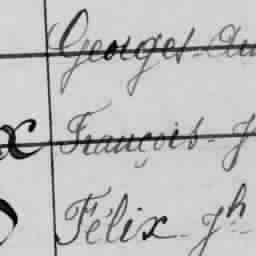 Georges Au
x François J
Félix Jh